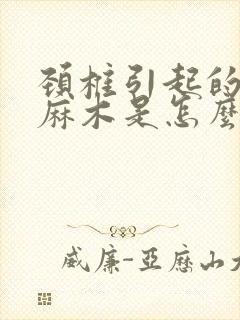 頚椎引起的
麻木是怎麼
威廉-亞歷山大